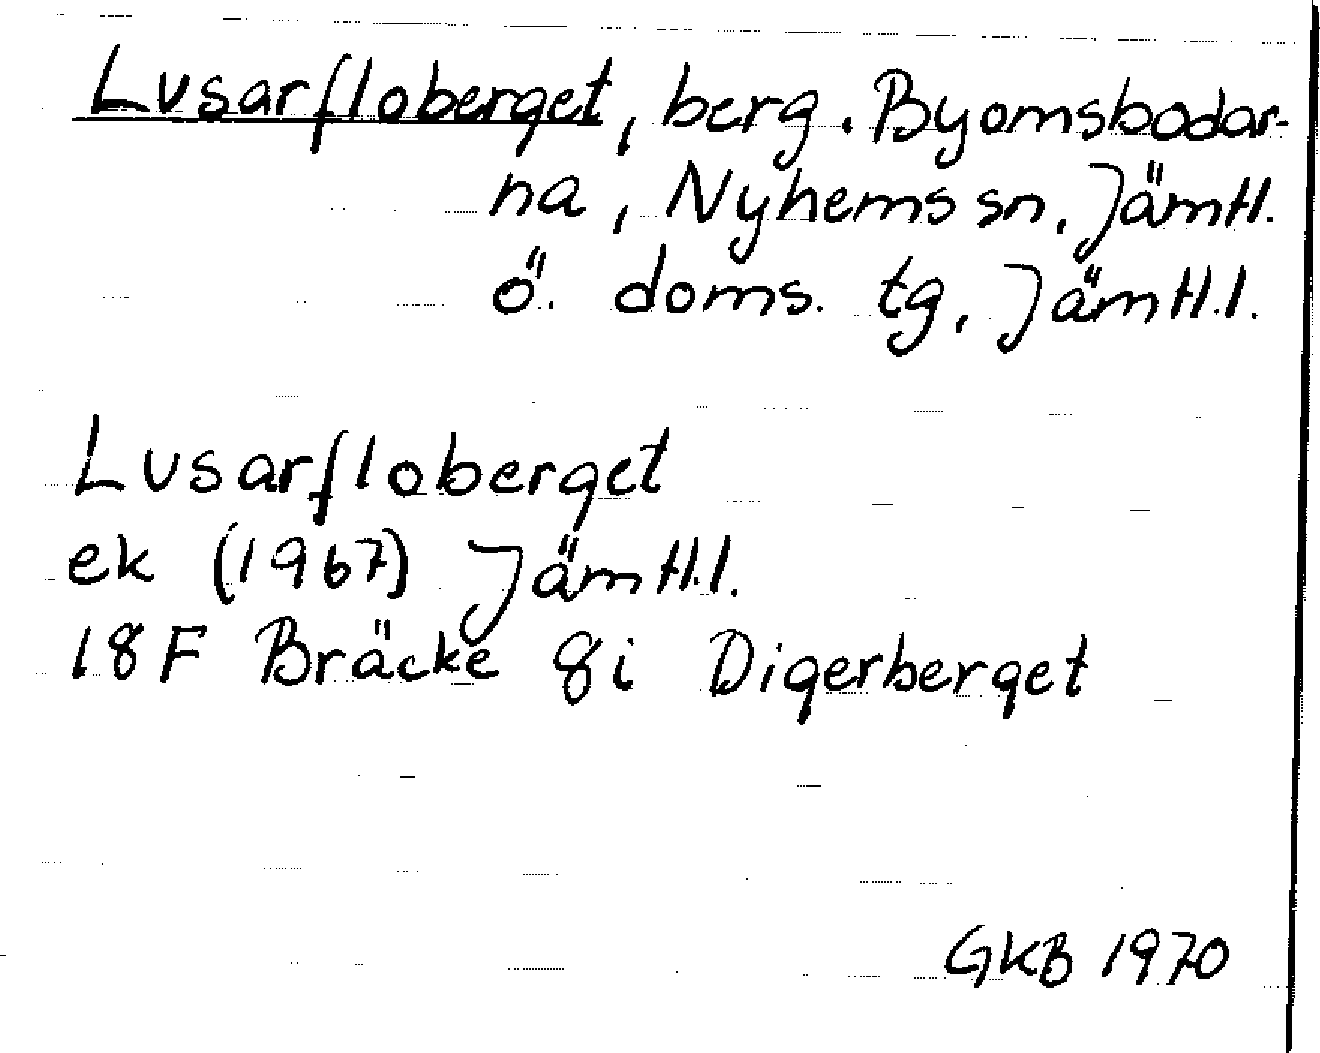 Lusarfloberget, berg. Byomsbodar-
na, Nyhems sn, Jämtl.
ö. doms. tg, Jämtl.l.
Lusarfloberget
ek (1967) Jämtl.l.
18F Bräcke 8i Digerberget
GKB 1970